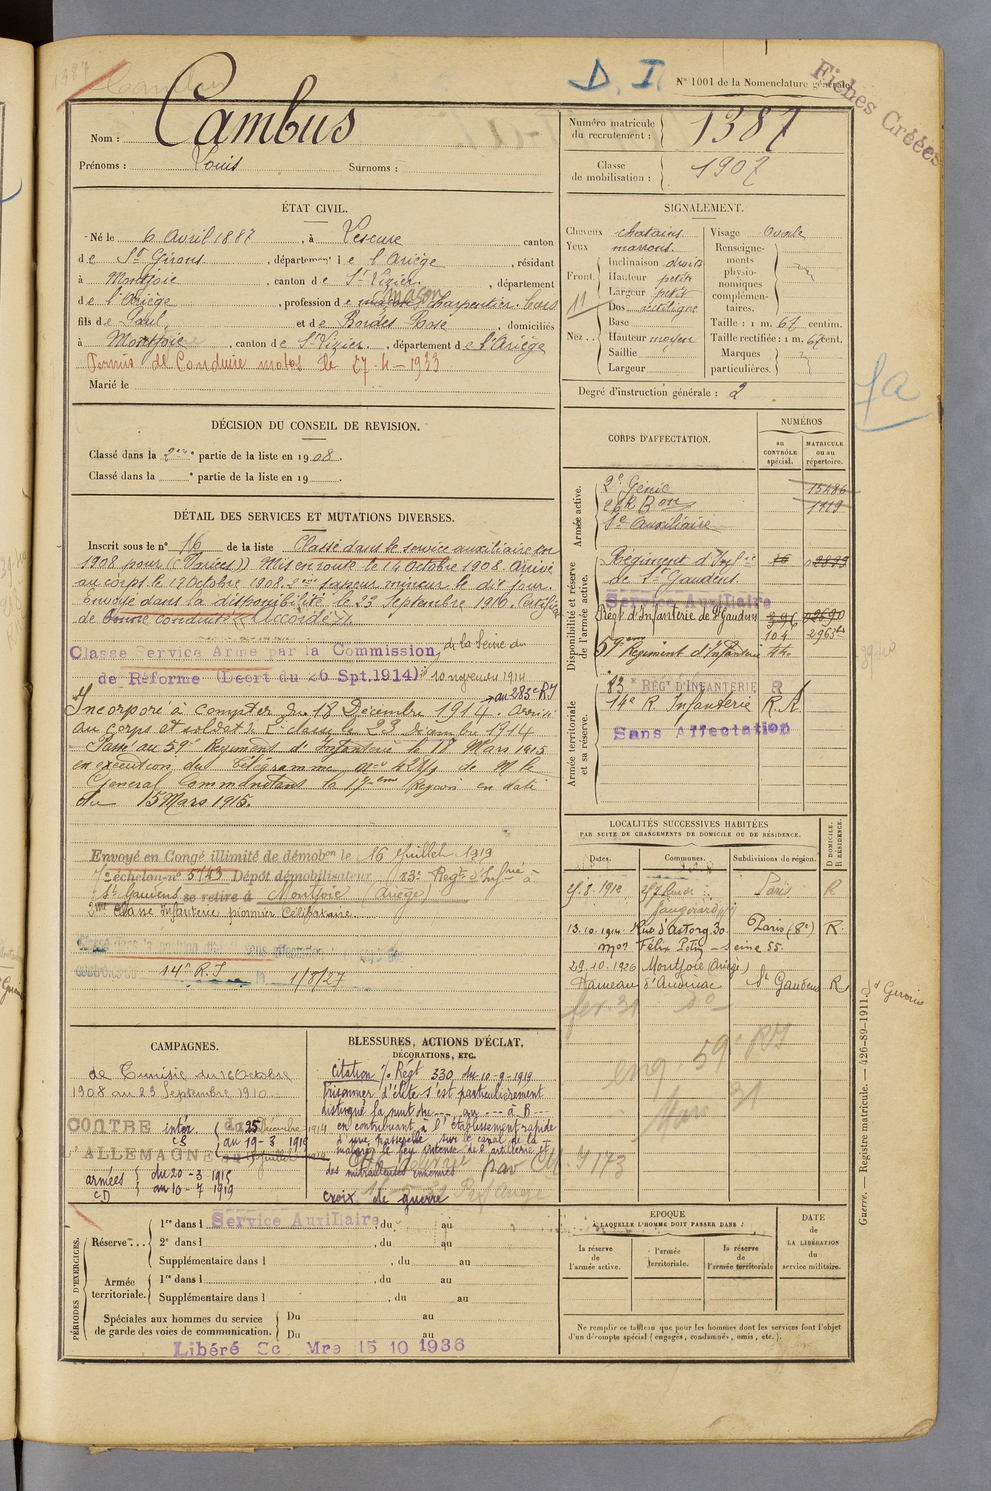 1387
D. I.
N° 1001 de la Nomenclature générale.
Fiches Créées
Nom : Cambus
Prénoms : Louis Surnoms :
Numéro matricule du recrutement : 1387
Classe de mobilisation : 1907
ÉTAT CIVIL.
Né le 6 Avril 1887, à Lescure canton
de St Girons, département de l'Ariège, résidant
à Montjoie, canton de St Lizier, département
de l'Ariège, profession de maçon Charpentier
fils de Paul, et de Bordes Rose, domiciliés
à Montjoie, canton de St Lizier, département de l'Ariège
Permis de Conduire motos le 27-4-1933
Marié le
SIGNALEMENT.
Cheveux chatains
Yeux marrons.
Front Inclinaison droite
Hauteur petite
Largeur petite
Nez Dos rectiligne
Base
Hauteur moyen
Saillie
Largeur
Visage Ovale
Renseignements physionomiques complémentaires.
Taille : 1 m. 67 centim.
Taille rectifiée : 1 m. 67 cent.
Marques particulières.
Degré d'instruction générale : 2
DÉCISION DU CONSEIL DE REVISION.
Classé dans la 2ème partie de la liste en 1908.
Classé dans la e partie de la liste en 19
DÉTAIL DES SERVICES ET MUTATIONS DIVERSES.
Inscrit sous le n° 16 de la liste Classé dans le service auxiliaire
1908 pour (Varices) Mis en route le 14 Octobre 1908. Arrivé
au corps le 17 Octobre 1908. 2ème sapeur mineur le dit jour.
Envoyé dans la disponibilité le 23 Septembre 1910. Certificat
de bonne conduite « Accordé ».
Classé Service Armé par la Commission de la Seine du
de Réforme (Décrt du 26 Spt. 1914) 10 novembre 1914
au 283e RI
Incorporé à compter du 18 Décembre 1914. Arrivé
au corps et soldat 2e classe le 23 Décembre 1914
Passé au 59e Régiment d'Infanterie le 17 Mars 1915
en exécution du télégramme de M. le
Général Commandant la 17ème Région en date
du 15 Mars 1915.
Envoyé en Congé illimité de démobon le 16 Juillet 1919
échelon n° 5143 Dépôt démobilisateur 83e Regt d'Infrie à
St Gaudens se retire à Montjoie (Ariège)
2me Classe Infanterie pionnier Célibataire
14e R.I le 1/8/27
CORPS D'AFFECTATION.
NUMÉROS
au CONTRÔLE spécial.
MATRICULE ou au répertoire.
Armée active.
2e Génie 15486
1919
Sce Auxiliaire
Disponibilité et réserve de l'armée active.
Régiment d'Infie
de St Gaudens
Service Auxiliaire
Regt d'Infanterie de St Gaudens
59ème Régiment d'Infanterie
Armée territoriale et sa réserve.
83e RÉGt D'INFANTERIE R
14e R. Infanterie
Sans Affectation
LOCALITÉS SUCCESSIVES HABITÉES
PAR SUITE DE CHANGEMENTS DE DOMICILE OU DE RÉSIDENCE.
Dates. Communes. Subdivisions de région. D DOMICILE. R RÉSIDENCE.
Paris R
13.10.1914 Rue d'Astorg 30. Paris (8e) R.
mon Félix Potin - Seine 55.
29.10.1926 Montjoie (Ariège)
Hameau d'Audinac St Gaudens R
St Girons
59e RI
Mars 31
CAMPAGNES.
de Tunisie du 16 Octobre
1908 au 23 Septembre 1910
CONTRE L'ALLEMAGNE
intér. CS du 25 Décembre 1914
au 19-3 1915
armées CD du 20-3-1915
au 10-7 1919
BLESSURES, ACTIONS D'ÉCLAT,
DÉCORATIONS, ETC.
Citation Regt 330 du 10-9-1919
Pionnier d'élite s'est particulièrement
distingué la nuit du --- au --- à B---
en contribuant à l'établissement rapide
d'une passerelle sur le canal de la
malgré le feu intense de l'artillerie et
des mitrailleuses ennemies
croix de guerre
PÉRIODES D'EXERCICES.
Réserve 1re dans l Service Auxiliaire, du au
2e dans l , du au
Supplémentaire dans l , du au
Armée territoriale. 1re dans l , du au
Supplémentaire dans l , du au
Spéciales aux hommes du service de garde des voies de communication. Du au
Du au
Libéré Sce Mre 15 10 1936
ÉPOQUE
À LAQUELLE L'HOMME DOIT PASSER DANS :
la réserve de l'armée active.
l'armée territoriale.
la réserve de l'armée territoriale
DATE DE LA LIBÉRATION du service militaire.
Ne remplir ce tableau que pour les hommes dont les services font l'objet
d'un décompte spécial (engagés, condamnés, omis, etc.).
Guerre. — Registre matricule. — 426-89-1911.